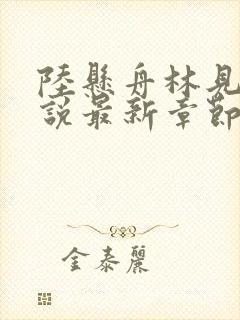 陸懸舟林見
説最新章節
金泰麗